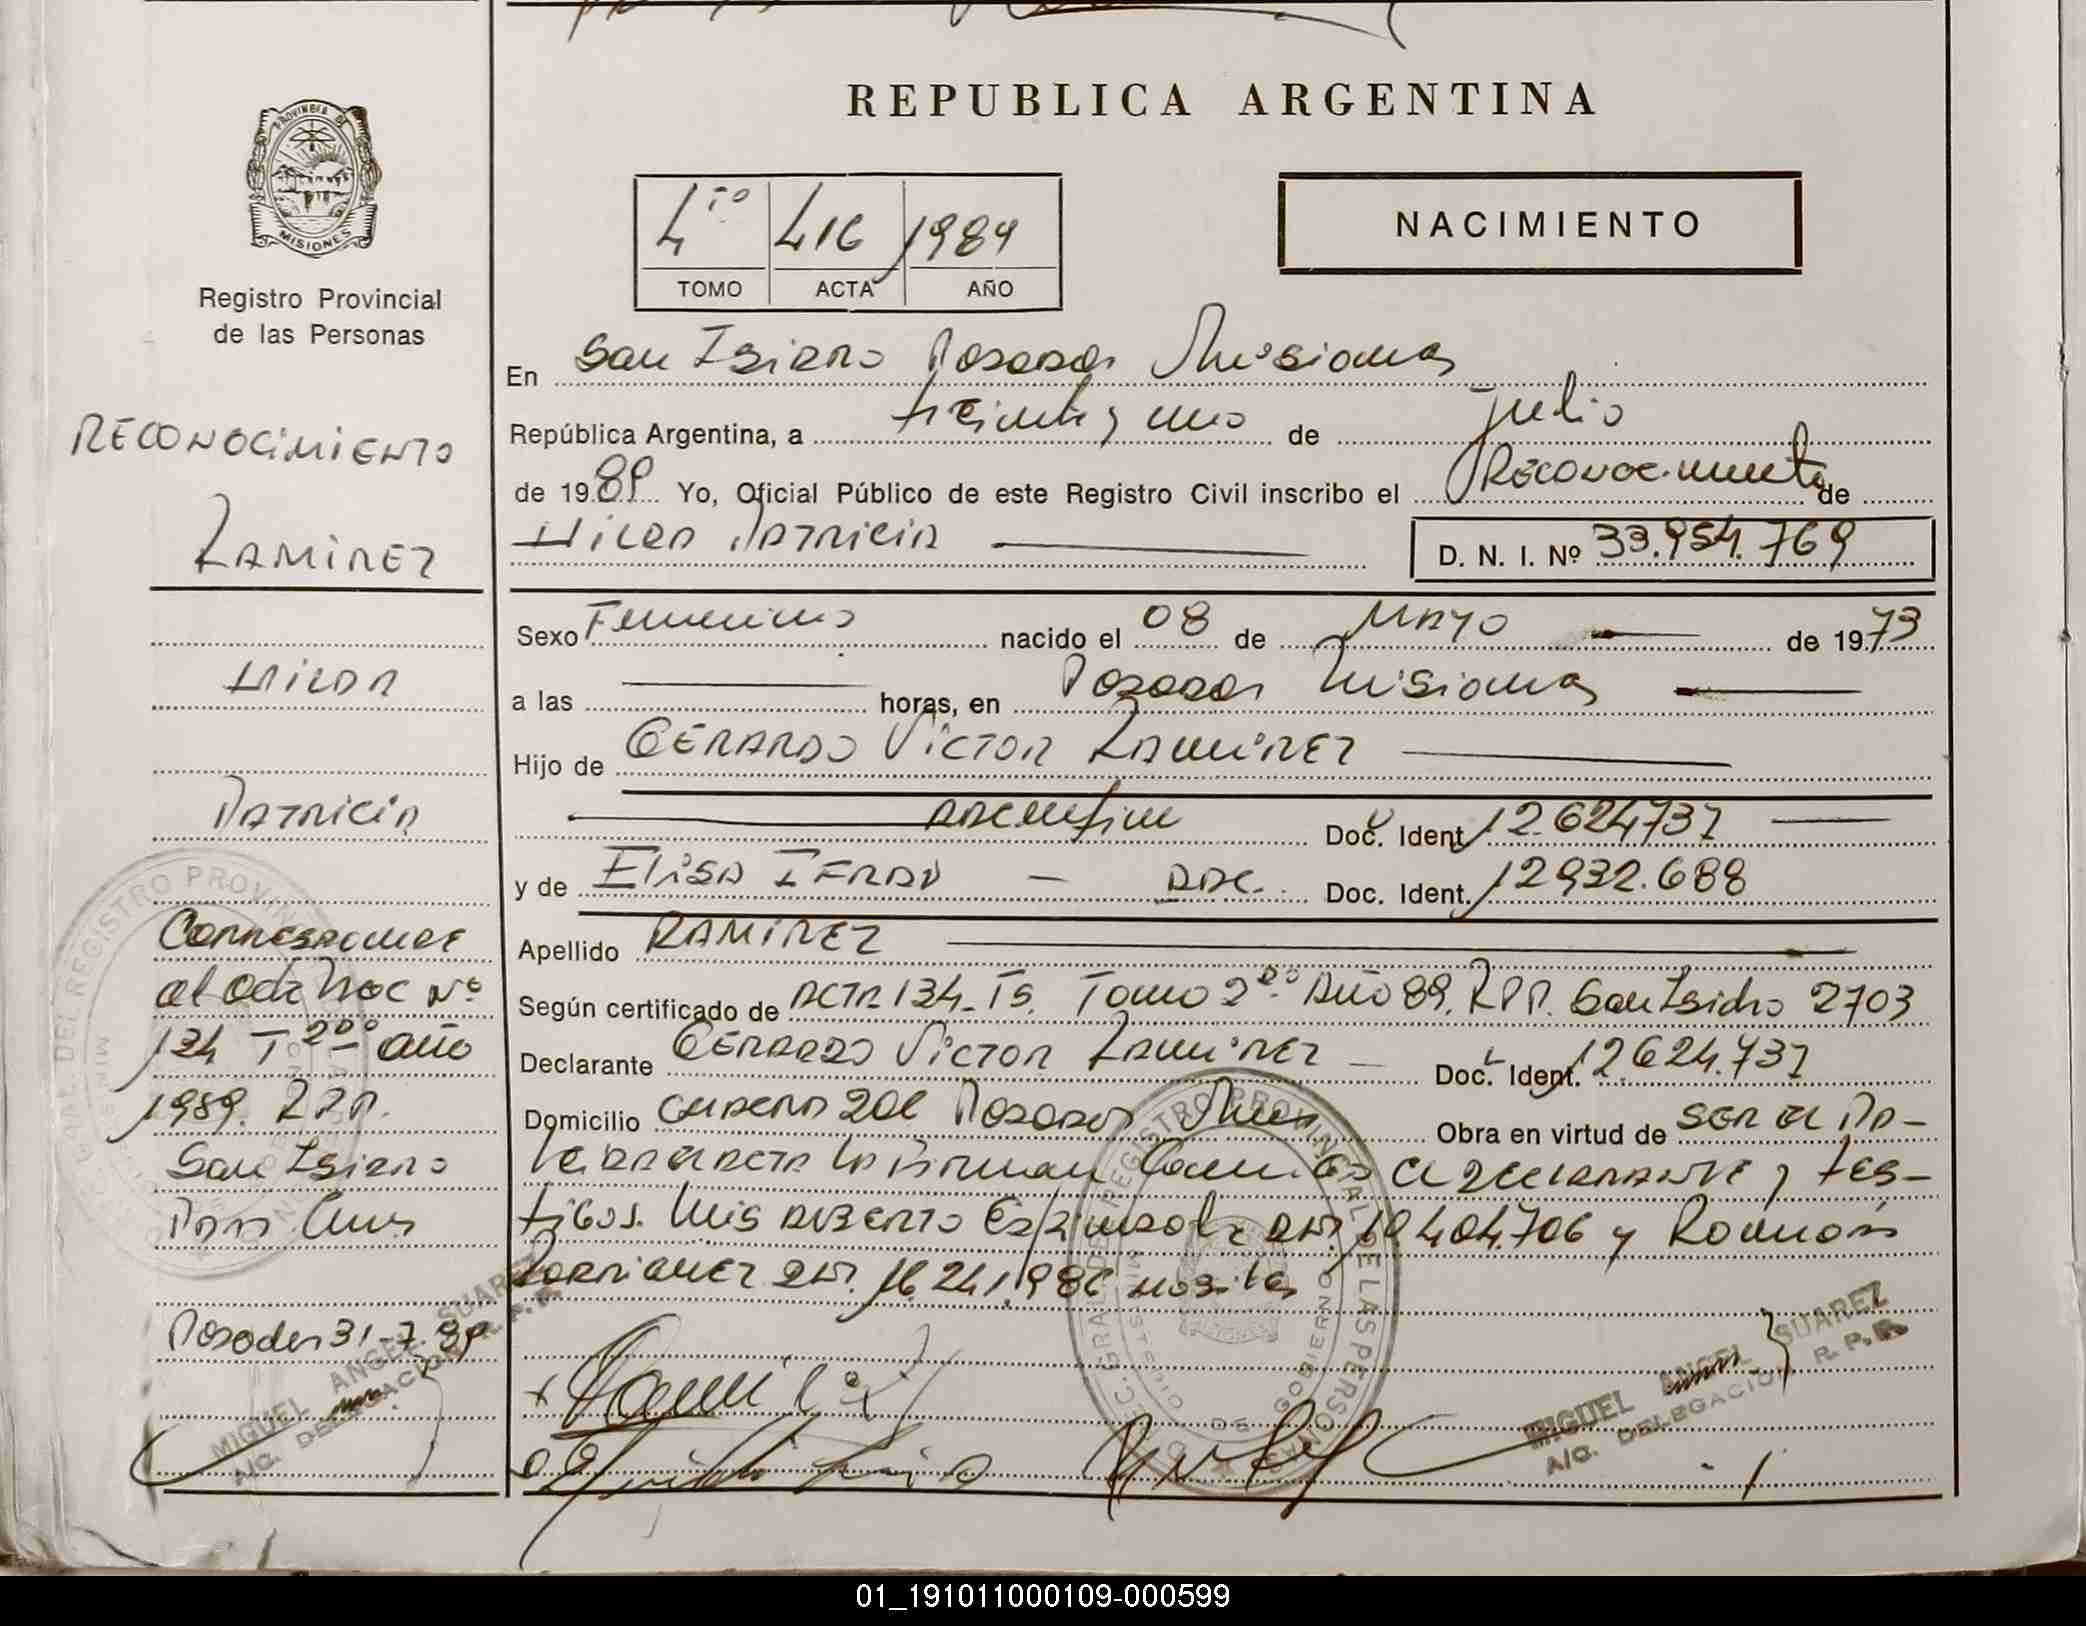 PROVINCIA DE
MISIONES
Registro Provincial
de las Personas
RECONOCIMIENTO
RAMIREZ
HILDA
PATRICIA
Corresponde
al acta Nº
134 T 2do año
1989. R.P.P.
San Isidro
Posadas 31-7-89
MIGUEL ANGEL SUAREZ
A/C. DELEGACION R.P.P.
REPUBLICA ARGENTINA
4to 416 1989
TOMO ACTA AÑO
NACIMIENTO
En San Isidro Posadas Misiones
República Argentina, a treinta y uno de julio
de 1989 Yo, Oficial Público de este Registro Civil inscribo el Reconocimiento de
HILDA PATRICIA D. N. I. Nº 33.954.769
Sexo Femenino nacido el 08 de MAYO de 1973
a las horas, en Posadas Misiones
Hijo de GERARDO VICTOR RAMIREZ
argentino Doc. Ident. 12.624737
y de ELISA IFRAN - ARG. Doc. Ident. 12932.688
Apellido RAMIREZ
Según certificado de ACTA 134 - Is. Tomo 2do AÑO 89. R.P.P. San Isidro 2703
Declarante GERARDO VICTOR RAMIREZ - Doc. Ident. 12624.737
Domicilio Posadas Obra en virtud de SER EL PA-
firman el declarante y tes-
tigos. Luis Alberto 10.404.706 y Ramón
16.241.986
MIGUEL ANGEL SUAREZ
A/C. DELEGACION R.P.R.
01_191011000109-000599